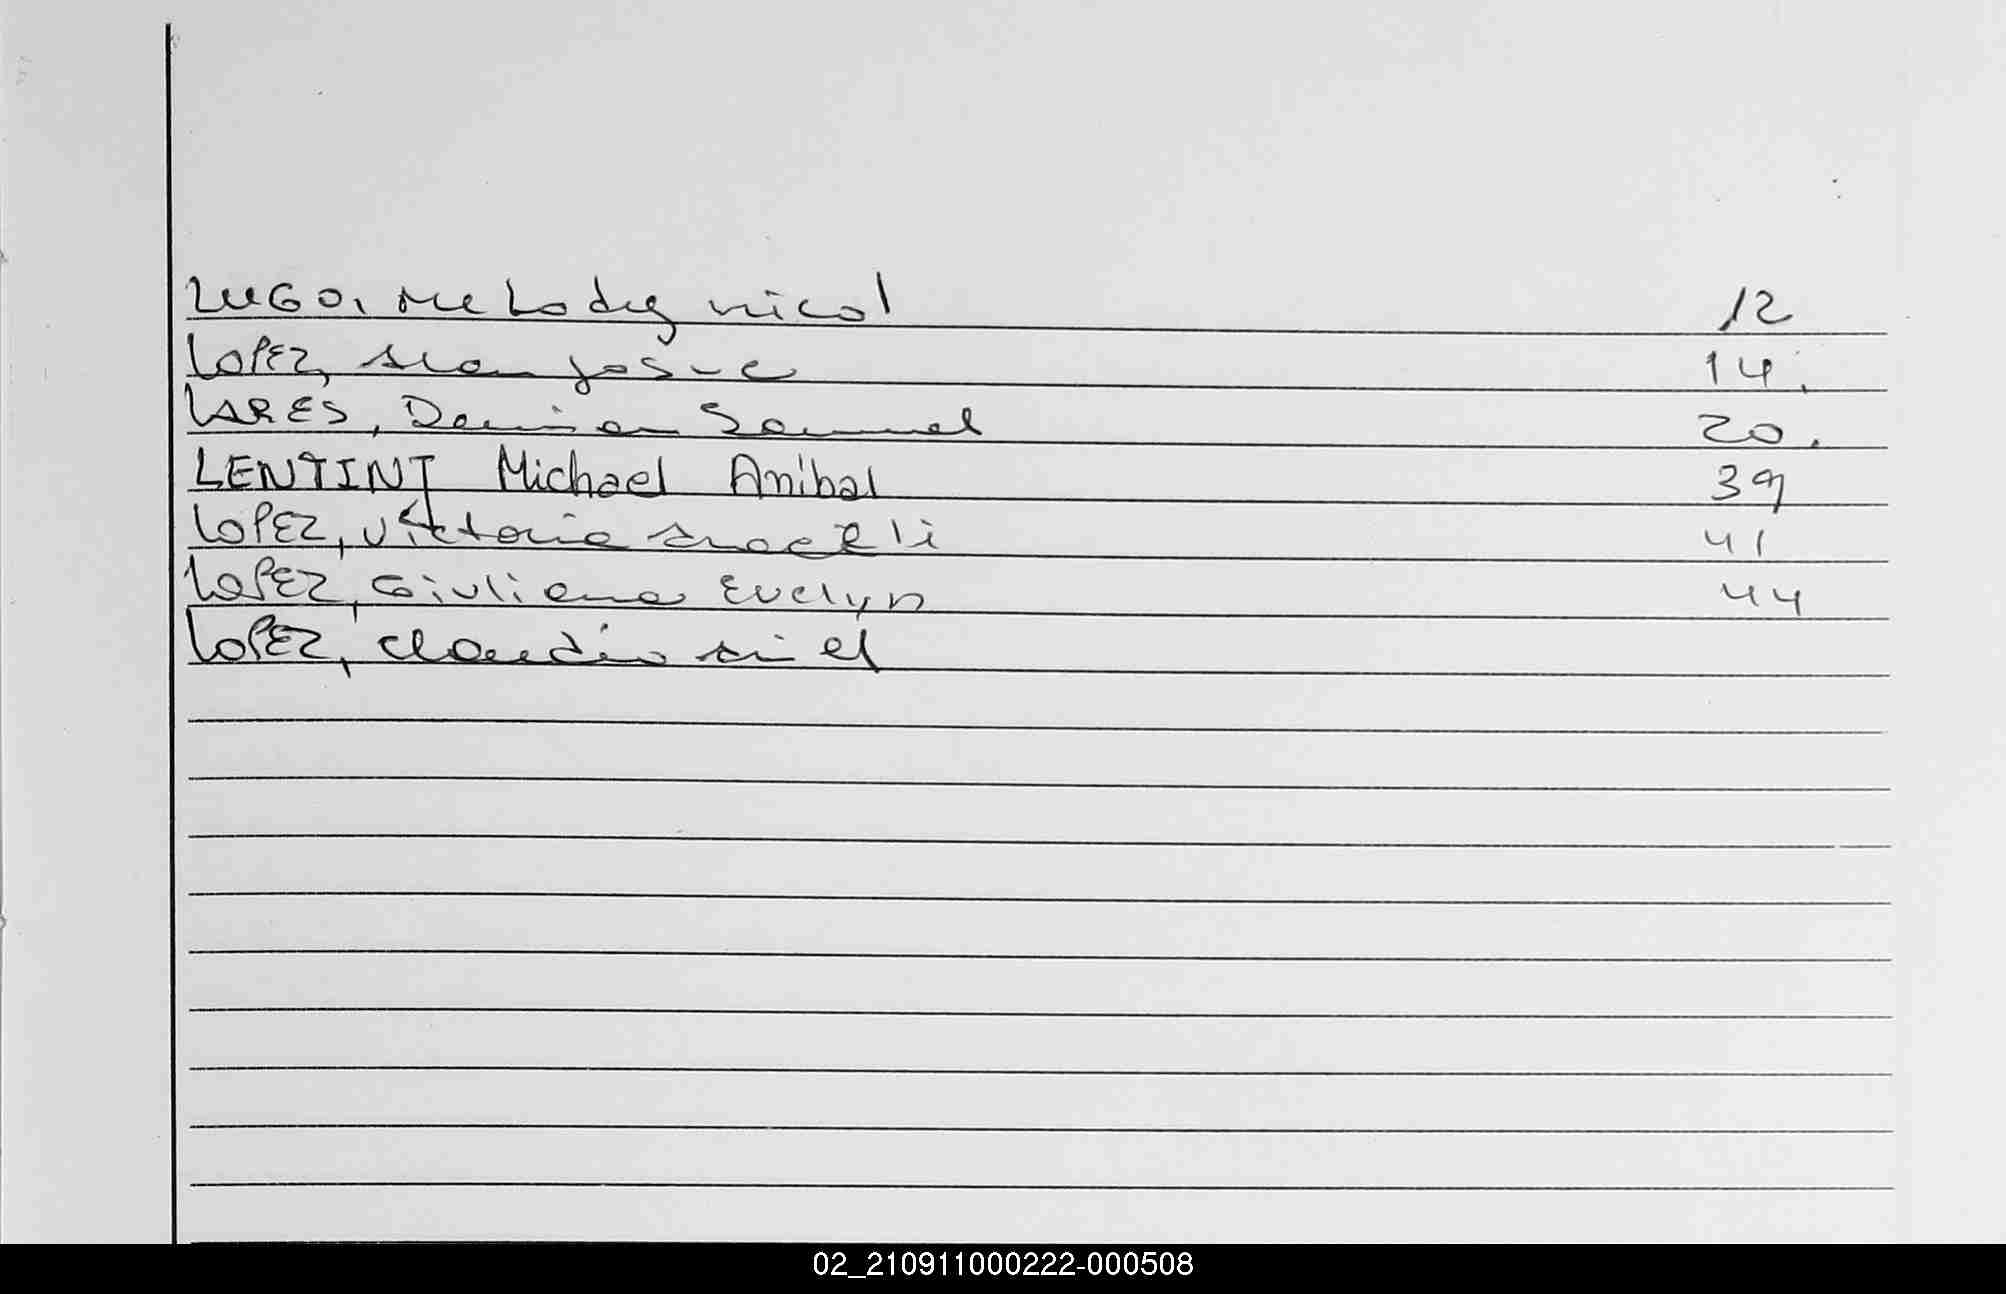 LUGO, Melody nicol 12
LOPEZ, Alan Josue 14.
LARES, Demian Samuel 20.
LENTINI Michael Anibal 39
LOPEZ, Victoria Araceli 41
LOPEZ, Giuliana Evelyn 44
LOPEZ, Claudio Ariel
02_210911000222-000508